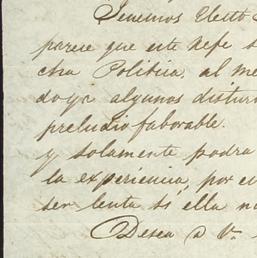 Tenemos Electo
parese que este Xefe s
cha Politica, al me
do ya algunos distur
preludio faborable.
y solamente podra
la experiencia, por
ser lenta si ella no
Desea a V.